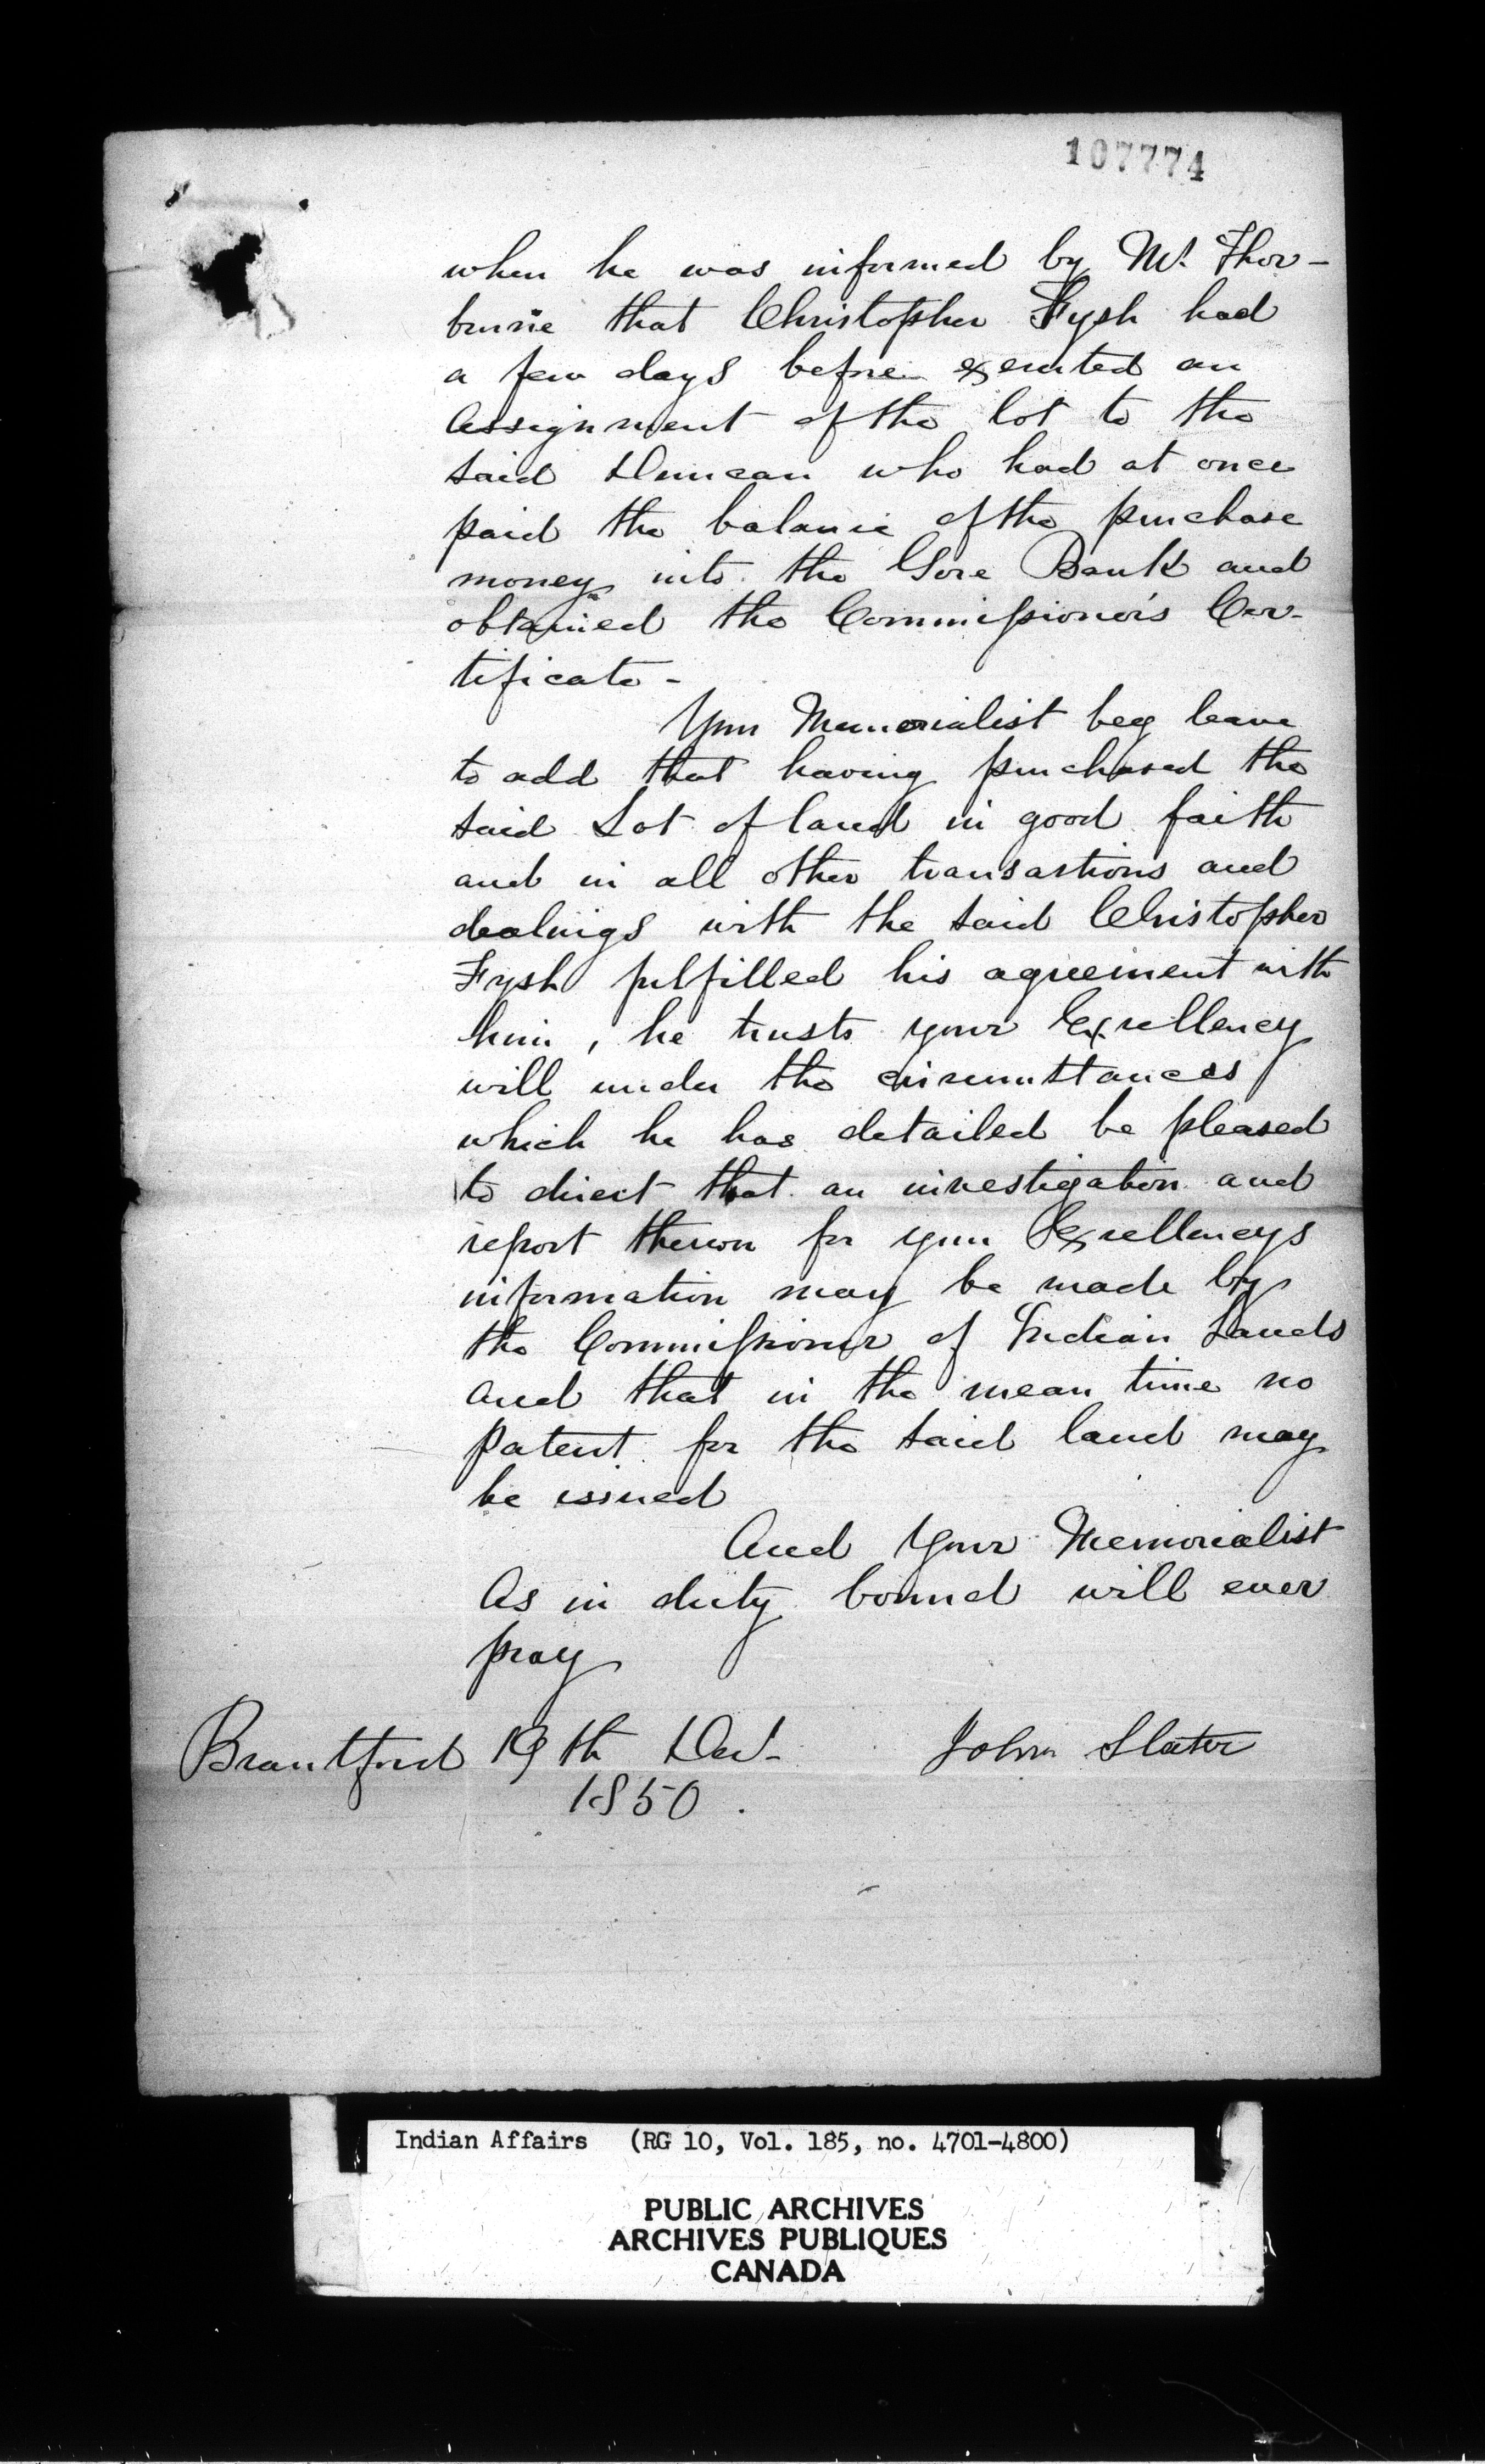 107774
when he was informed by Mr. Thor-
burne that Christopher Fysh had
a few days before executed an
Assignment of the lot to the
said Duncan who had at once
paid the balance of the purchase
money into the Gore Bank and
obtained the Commissioner's Cer-
tificate -
Your Memorialist beg leave
to add that having purchased the
said Lot of land in good faith
and in all other transactions and
dealings with the said Christopher
Fysh fulfilled his agreement with
him, he trusts your Excellency
will under the circumstances
which he has detailed be pleased
to direct that an investigation and
report thereon for your Excellencys
information may be made by
the Commissioner of Indian Lands
and that in the mean time no
patent for the said land may
be issued
And Your Memorialist
As in duty bound will ever
pray
Brantford 19th Dec. John Slater
1850.
Indian Affairs (RG 10, Vol. 185, no. 4701-4800)
PUBLIC ARCHIVES
ARCHIVES PUBLIQUES
CANADA